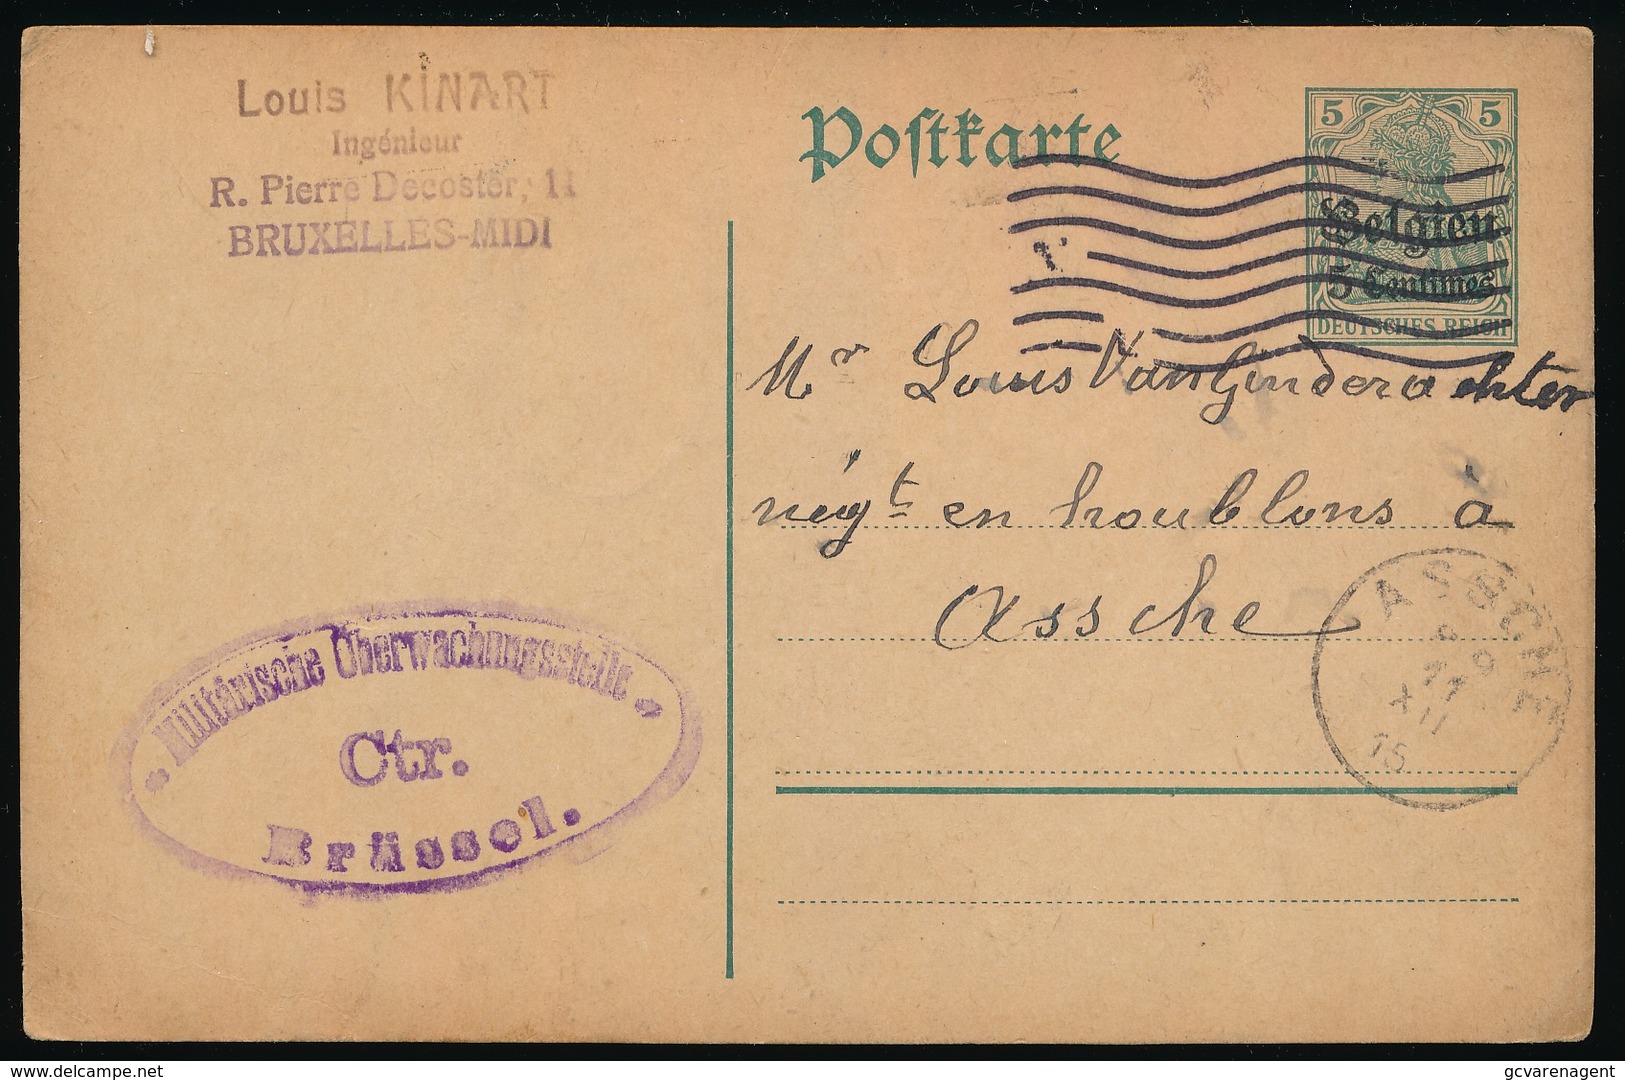 Louis KINART
Ingénieur
R. Pierre Decoster, 11
BRUXELLES-MIDI
Postkarte
5 5
Belgien
5 Centimes
DEUTSCHES REICH
Mr Louis VanGinderachter
négt en houblons à
Assche
ASSCHE
9
11
XII
15
Militärische Überwachungsstelle
Ctr.
Brüssel.
delcampe.net
gcvarenagent